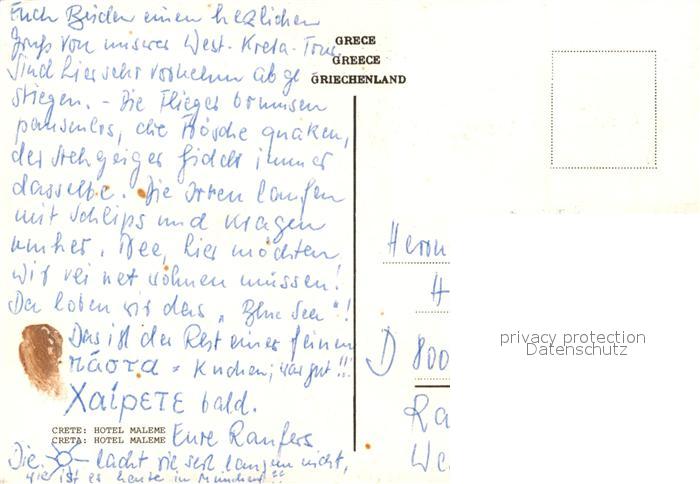 Euch Beiden einen herzlichen
Gruß von unserer West-Kreta-Tour.
Sind hier sehr vornehm abge
stiegen. - Die Flieger brummen
pausenlos, die Frösche quaken,
der Stehgeiger fidelt immer
dasselbe. Die Irren laufen
mit Schlips und Kragen
umher. Nee, hier möchten
wir nicht wohnen müssen!
Da loben wir das „Blue Sea"!
Das ist der Rest einer feinen
πάστα = Kuchen; war gut!!!
Χαίρετε bald.
CRETE: HOTEL MALEME
CRETA: HOTEL MALEME
Eure Ranfers
Die - lacht sie seit langem nicht,
wie ist es heute in München??
GRECE
GREECE
GRIECHENLAND
Herrn
H
D 800
Ra
We
privacy protection
Datenschutz